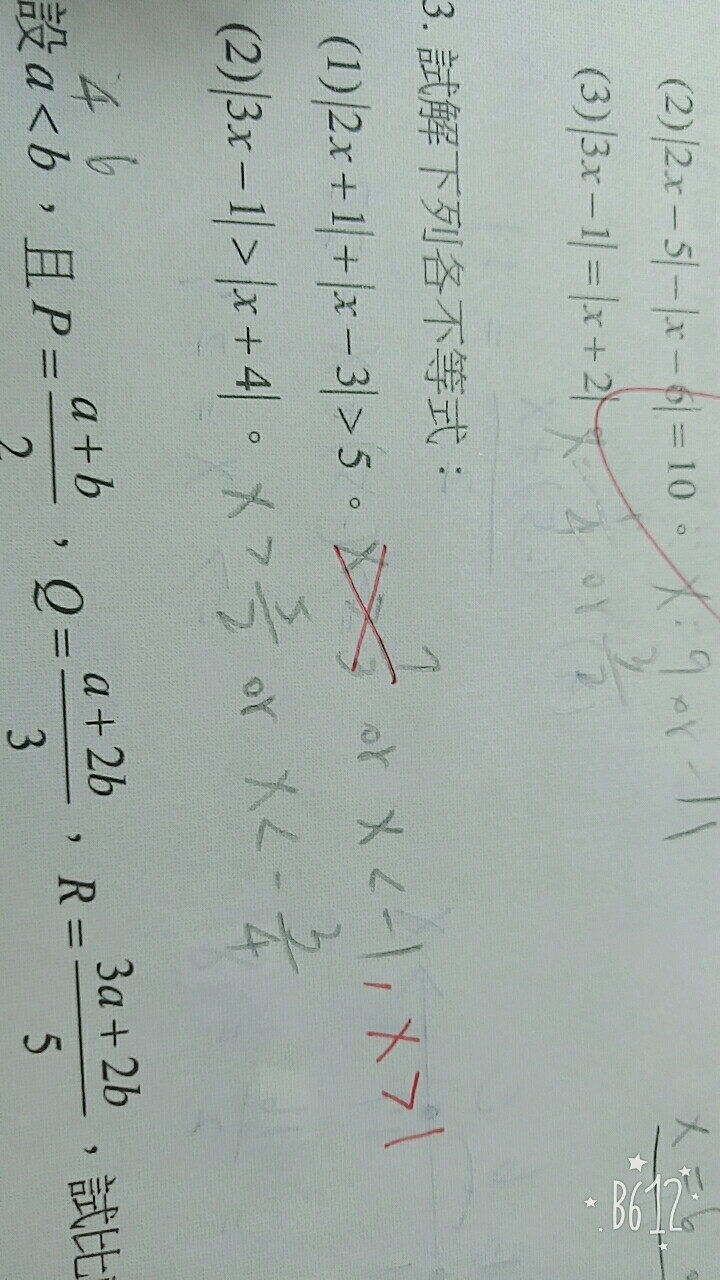 (2)|2x-5|-|x-6|=10。 x: 9 or -11
(3)|3x-1|=|x+2| x: -1/4 or 3/2
3. 試解下列各不等式：
(1)|2x+1|+|x-3|>5。 or x<-1, x>1
(2)|3x-1|>|x+4|。 x>5/2 or x<-3/4
4 b
設a<b，且P=(a+b)/2，Q=(a+2b)/3，R=(3a+2b)/5，試比
x=6
B612